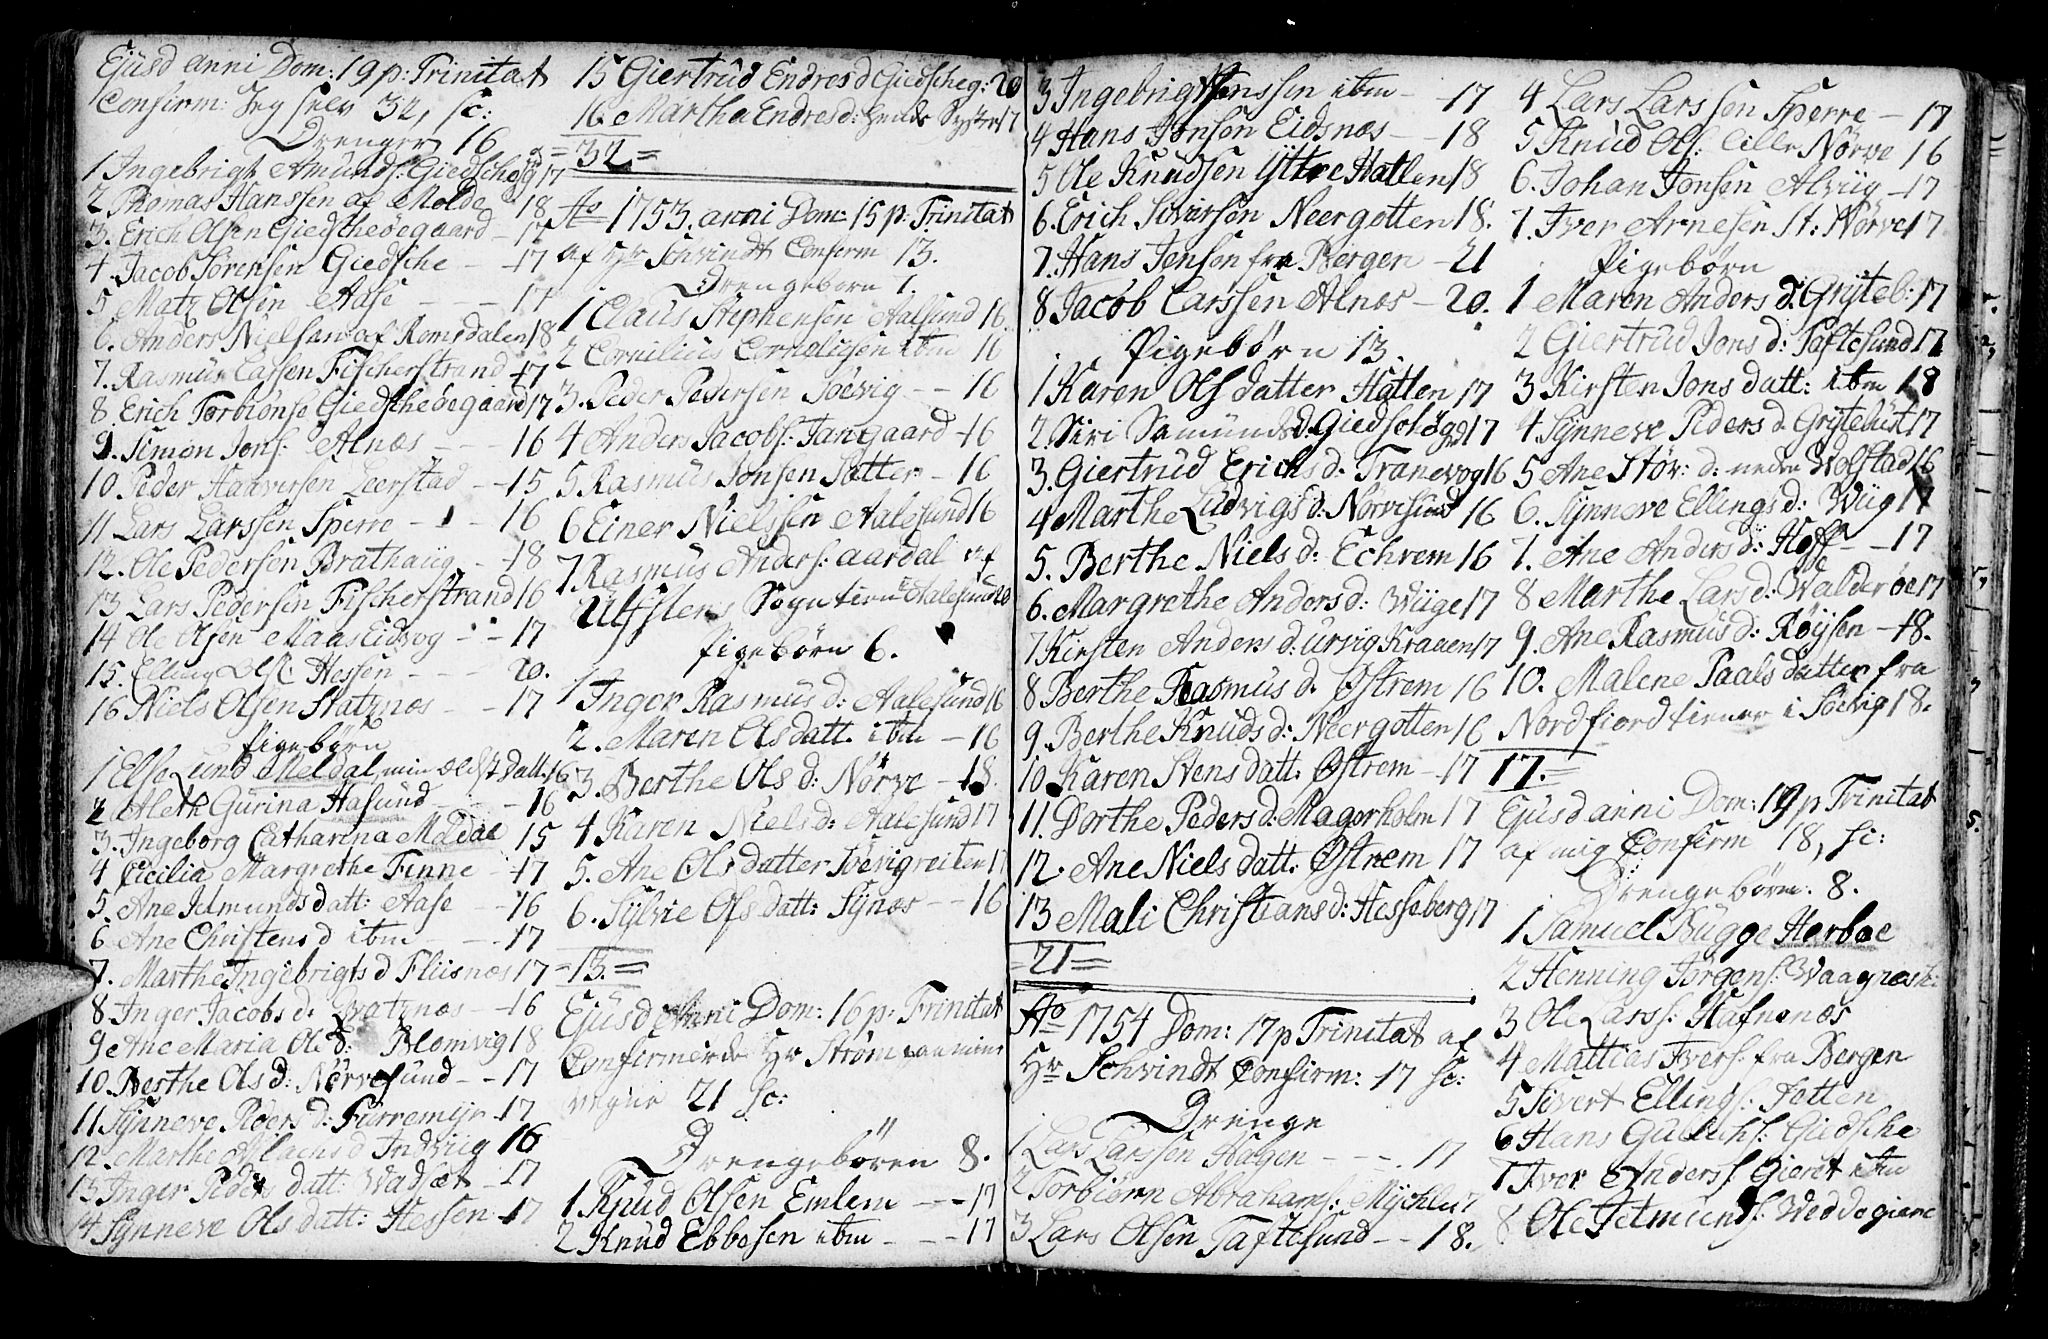 Ejusd anni Dom: 19 p: Trinitat
Confirm: Jeg selv 32, sc:
Drenger 16
1 Ingebrigt Amunds: Giedsche 17
2 Thomas Hanssen af Molde 18
3. Erich Olsen Giedscheøegaard - 17
4. Jacob Sørensen Giedsche - 17
5 Matz Olsen Aase - - - 17
6. Anders Nielsen af Romsdalen 18
7. Rasmus Lassen Fischerstrand 17
8. Erich Torbiønse Giedscheøegaard 17
9. Simon Jons: Alnæs - - - 16
10 Peder Haaversen Leerstad - - 15
11 Lars Larssen Sperre - - - 16
12. Ole Pedersen Brathaug - 18
13 Lars Pedersen Fischerstrand 16
14 Ole Olsen Maaseidvog - - 17
15. Elling Ols: Hessen - - - 20.
16 Niels Olsen Statznæs - - 17
Pigebørn
1 Else Lund Meldal, min ældste Datt. 16
2 Aleth Gurina Hasund - - - 16
3. Ingeborg Catharina Mødal 15
4 Cicilia Margrethe Finne - 17
5. Ane Idmunds datt: Aase - - 16
6 Ane Christens d ibm - - 17
7. Marthe Ingebrigts d Fliisnæs 17
8 Inger Jacobs d. Bratznæs - - 16
9 Ane Maria Ole d: Blomvig 18
10. Berthe Ols d: Nørvesund - - 17
11 Synneve Peders d: Furremyr 17
12. Marthe Aslachs d Indviig 16
13 Inger Peders datt: Wadset - 17
14 Synneve Ols datt: Hessen 17
15 Giertrud Endres d Giedscheg: 20
16. Martha Endres d: hendes Syster 17
= 32 =
Ao 1753. anni Dom: 15 p: Trinitat
af Hr Schvindt Confirm 13.
Drengeborn 7.
1 Claus Stephensen Aalsund 16.
2 Cornilius Corneliusen ibm 16
3. Peder Pedersen Søevig - - 16
4 Anders Jacobs: Tangaard 16
5 Rasmus Jonsen Sætter - 16
6 Einer Nielssen Aalesund 16
7 Rasmus Anders: aardal af
Ulfsteens Sogn tien i Aalesund 20
Pigebørn 6.
1 Inger Rasmus d: Aalesund 16
2. Maren Ols datt. ibm - 16
3. Berthe Ols d: Nørve - 18
4 Karen Niels d: Aalesund 17
5. Ane Ols datter Søevigreiten 17
6. Sylvie Ols datt: Synæs - - 16
= 13. =
Ejusd Anni Dom: 16 p: Trinitat
Confirmerede Hr Strøm paa mine
vegne 21 sc:
Drengebören 8.
1 Knud Olsen Emlem - - 17
2 Knud Ebbesen ibm - - - 17
3 Ingebrigt Hanssen ibm - - 17
4 Hans Jonsen Eidsnæs - - 18
5 Ole Knudsen Yttre Hatlen 18
6. Erich Siversen Neergotten 18.
7. Hans Jensen fra Bergen - 21
8 Jacob Larssen Alnæs - 20.
Pigebørn 13.
1 Karen Ols datter Hatlen 17
2 Siri Samunds d. Giedsch 17
3. Giertrud Erichs d. Tranevog 16
4 Marthe Ludvigs d: Nørvesund 16
5. Berthe Niels d: Echrem 16
6. Margrethe Anders d: Wiige 17
7 Kirsten Anders d: Urvig Kraaen 17
8 Berthe Rasmus d. Østrem 16
9. Berthe Knuds d: Neergotten 16
10 Karen Stens datt: Østrem - 17
11. Dorthe Peders d: Magerholm 17
12. Ane Niels datt: Østrem 17
13 Mali Christians d: Hesseberg 17
= 21 =
Ao 1754 Dom: 17 p Trinitat af
Hr Schvindt Confirm: 17 sc:
Drenge
1 Lars Larssen Hagen - - - 17
2 Torbiørn Abrahams: Mychleb 17
3 Lars Olsen Taftesund - - 18.
4 Lars Larssen Sperre - 17
5 Knud Ols: lille Nørve 16
6. Johan Jonsen Alviig - 17
7. Iver Arnesen St: Nørve 17
Pigebørn
1 Maren Anders d: Gryteb: 17
2 Giertrud Jons d: Taftesund 17
3 Kirsten Jons datt: ibm 18
4 Synneve Peders d. Grytebust 17
5 Ane Støv: d: nedre Wolstad 16
6. Synneve Ellings d: Wiig 17
7. Ane Anders d: Hoff - - 17
8 Marthe Lars d: Walderøe 17
9. Ane Rasmus d: Røysen - 18.
10. Malene Paals datter fra
Nordfiord tiener i Søevig 18.
17. =
Ejusd anni Dom: 19 p Trinitat
af mig Confirm 18, sc:
Drengebörn: 8.
1 Samuel Bugge Herboe
2 Henning Jørgens: Waagnæs
3 Ole Larss: Hafnenæs
4 Mattias Ivers: fra Bergen
5 Sivert Ellings: Tøtten
6 Hans Gulachs: Giedsche
7 Iver Anders: Gieret ibm
8 Ole Idmunds: Weddegierre